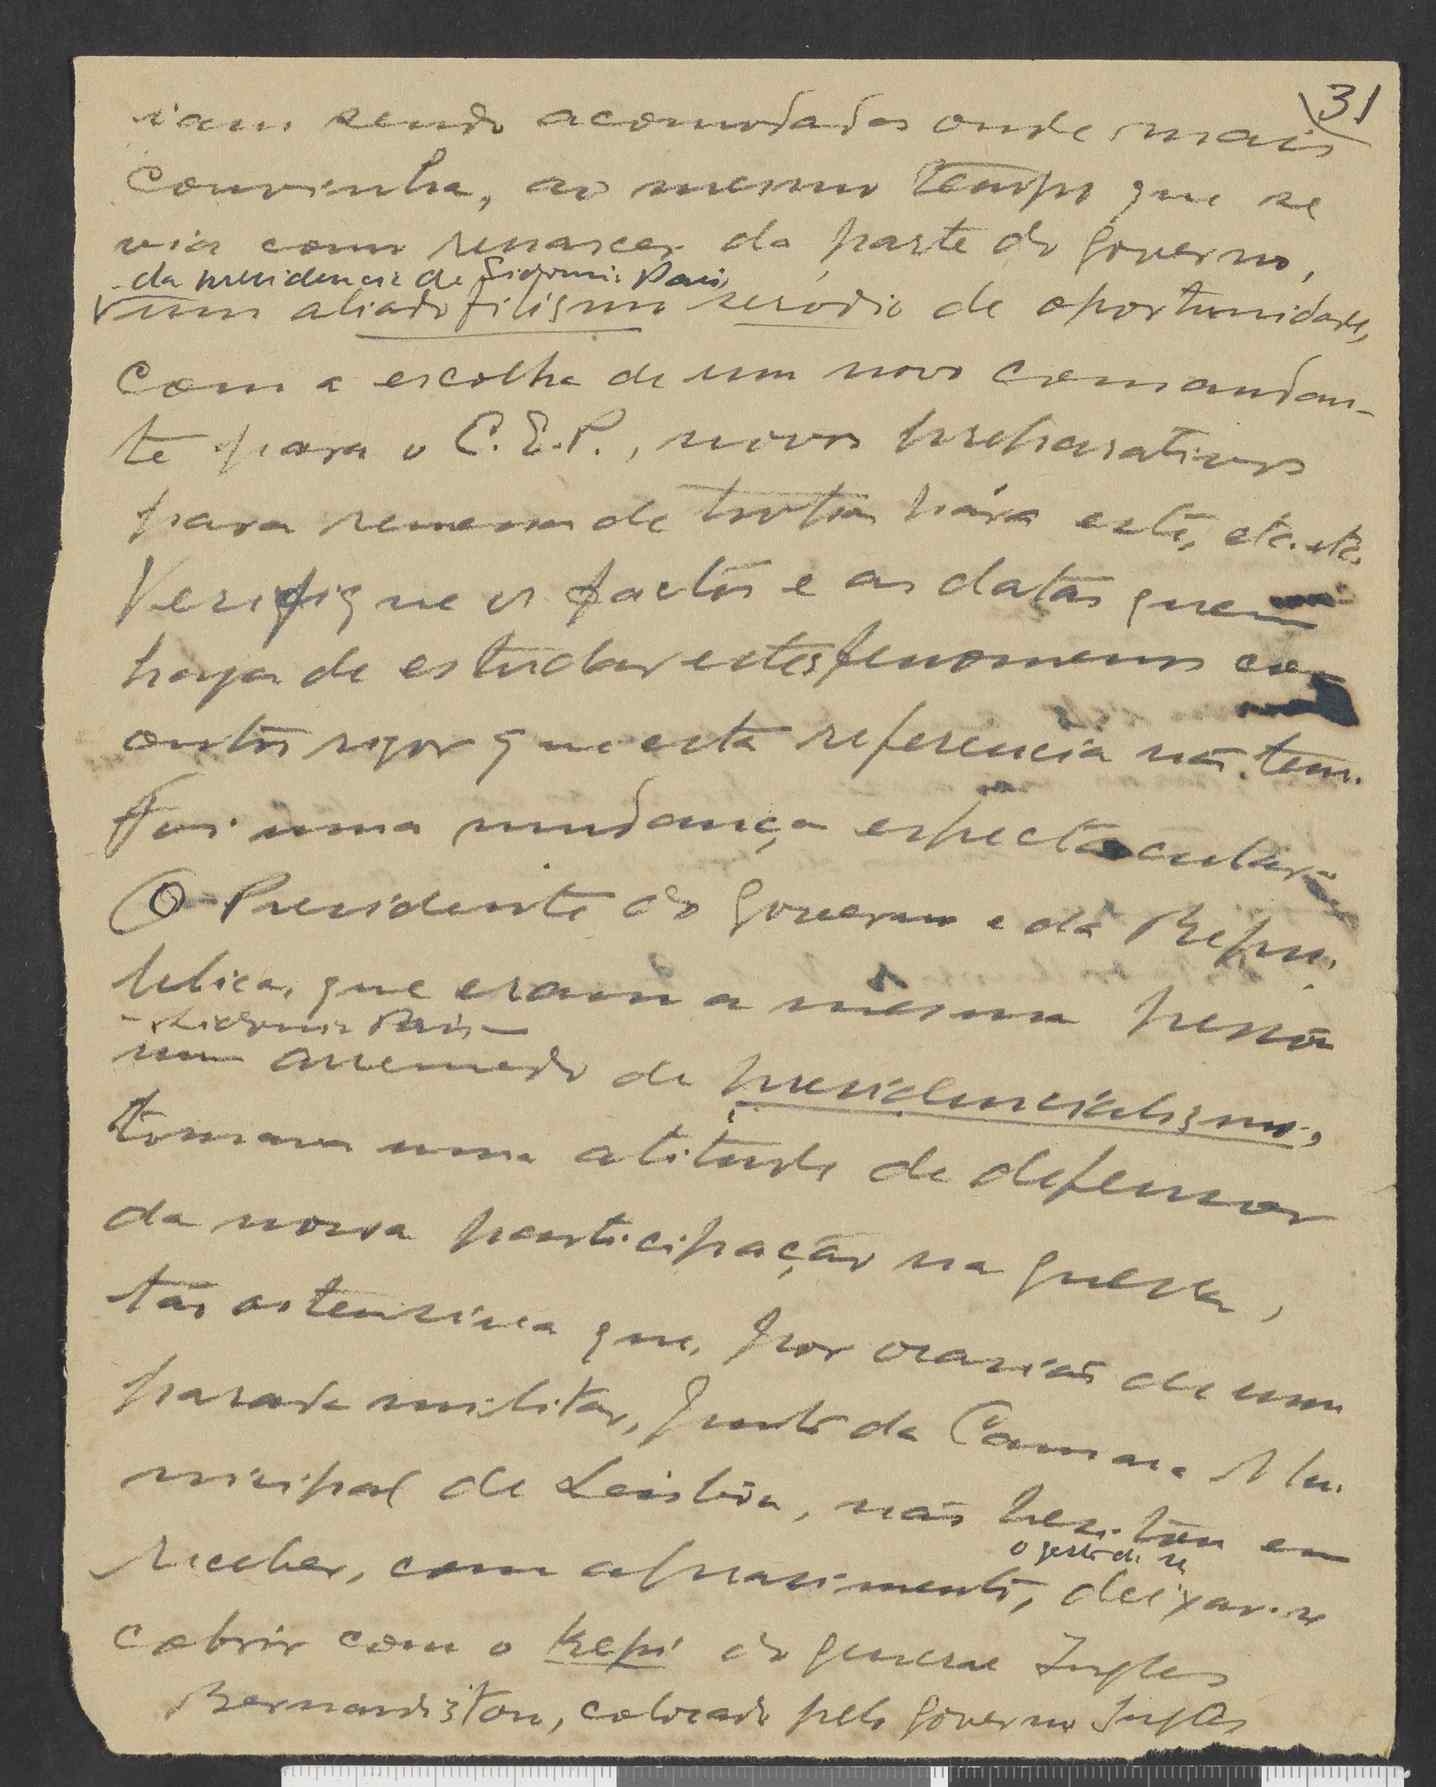 31
iam sendo acomodados onde mais
convinha, ao mesmo tempo que se
via como renascer da parte do Governo,
da presidencia de Sidonio Pais,
um aliadofilismo serodio de oportunidade,
com a escolha de um novo comandan-
te para o C.E.P., novos preparativos
para remessa de tropas pára este, etc. etc.
Verifique os factos e as datas quem
haja de estudar estes fenomenos com
outro rigor que esta referencia não tem.
Foi uma mudança espectacular
O Presidente do Governo e da Repu-
blica, que eram a mesma pessôa
- Sidonio Pais -
num arremedo de presidencialismo,
tomava uma atitude de defensor
da nossa participação na guerra,
tão ostensiva que, por ocasião de uma
parada militar, junto da Camara Mu-
nicipal de Lisbôa, não hesitou em
o gesto de se
receber, com aprasimento, deixar-se
cobrir com o kepi do general Ingles
Bernardiston, colocado pelo Governo Ingles